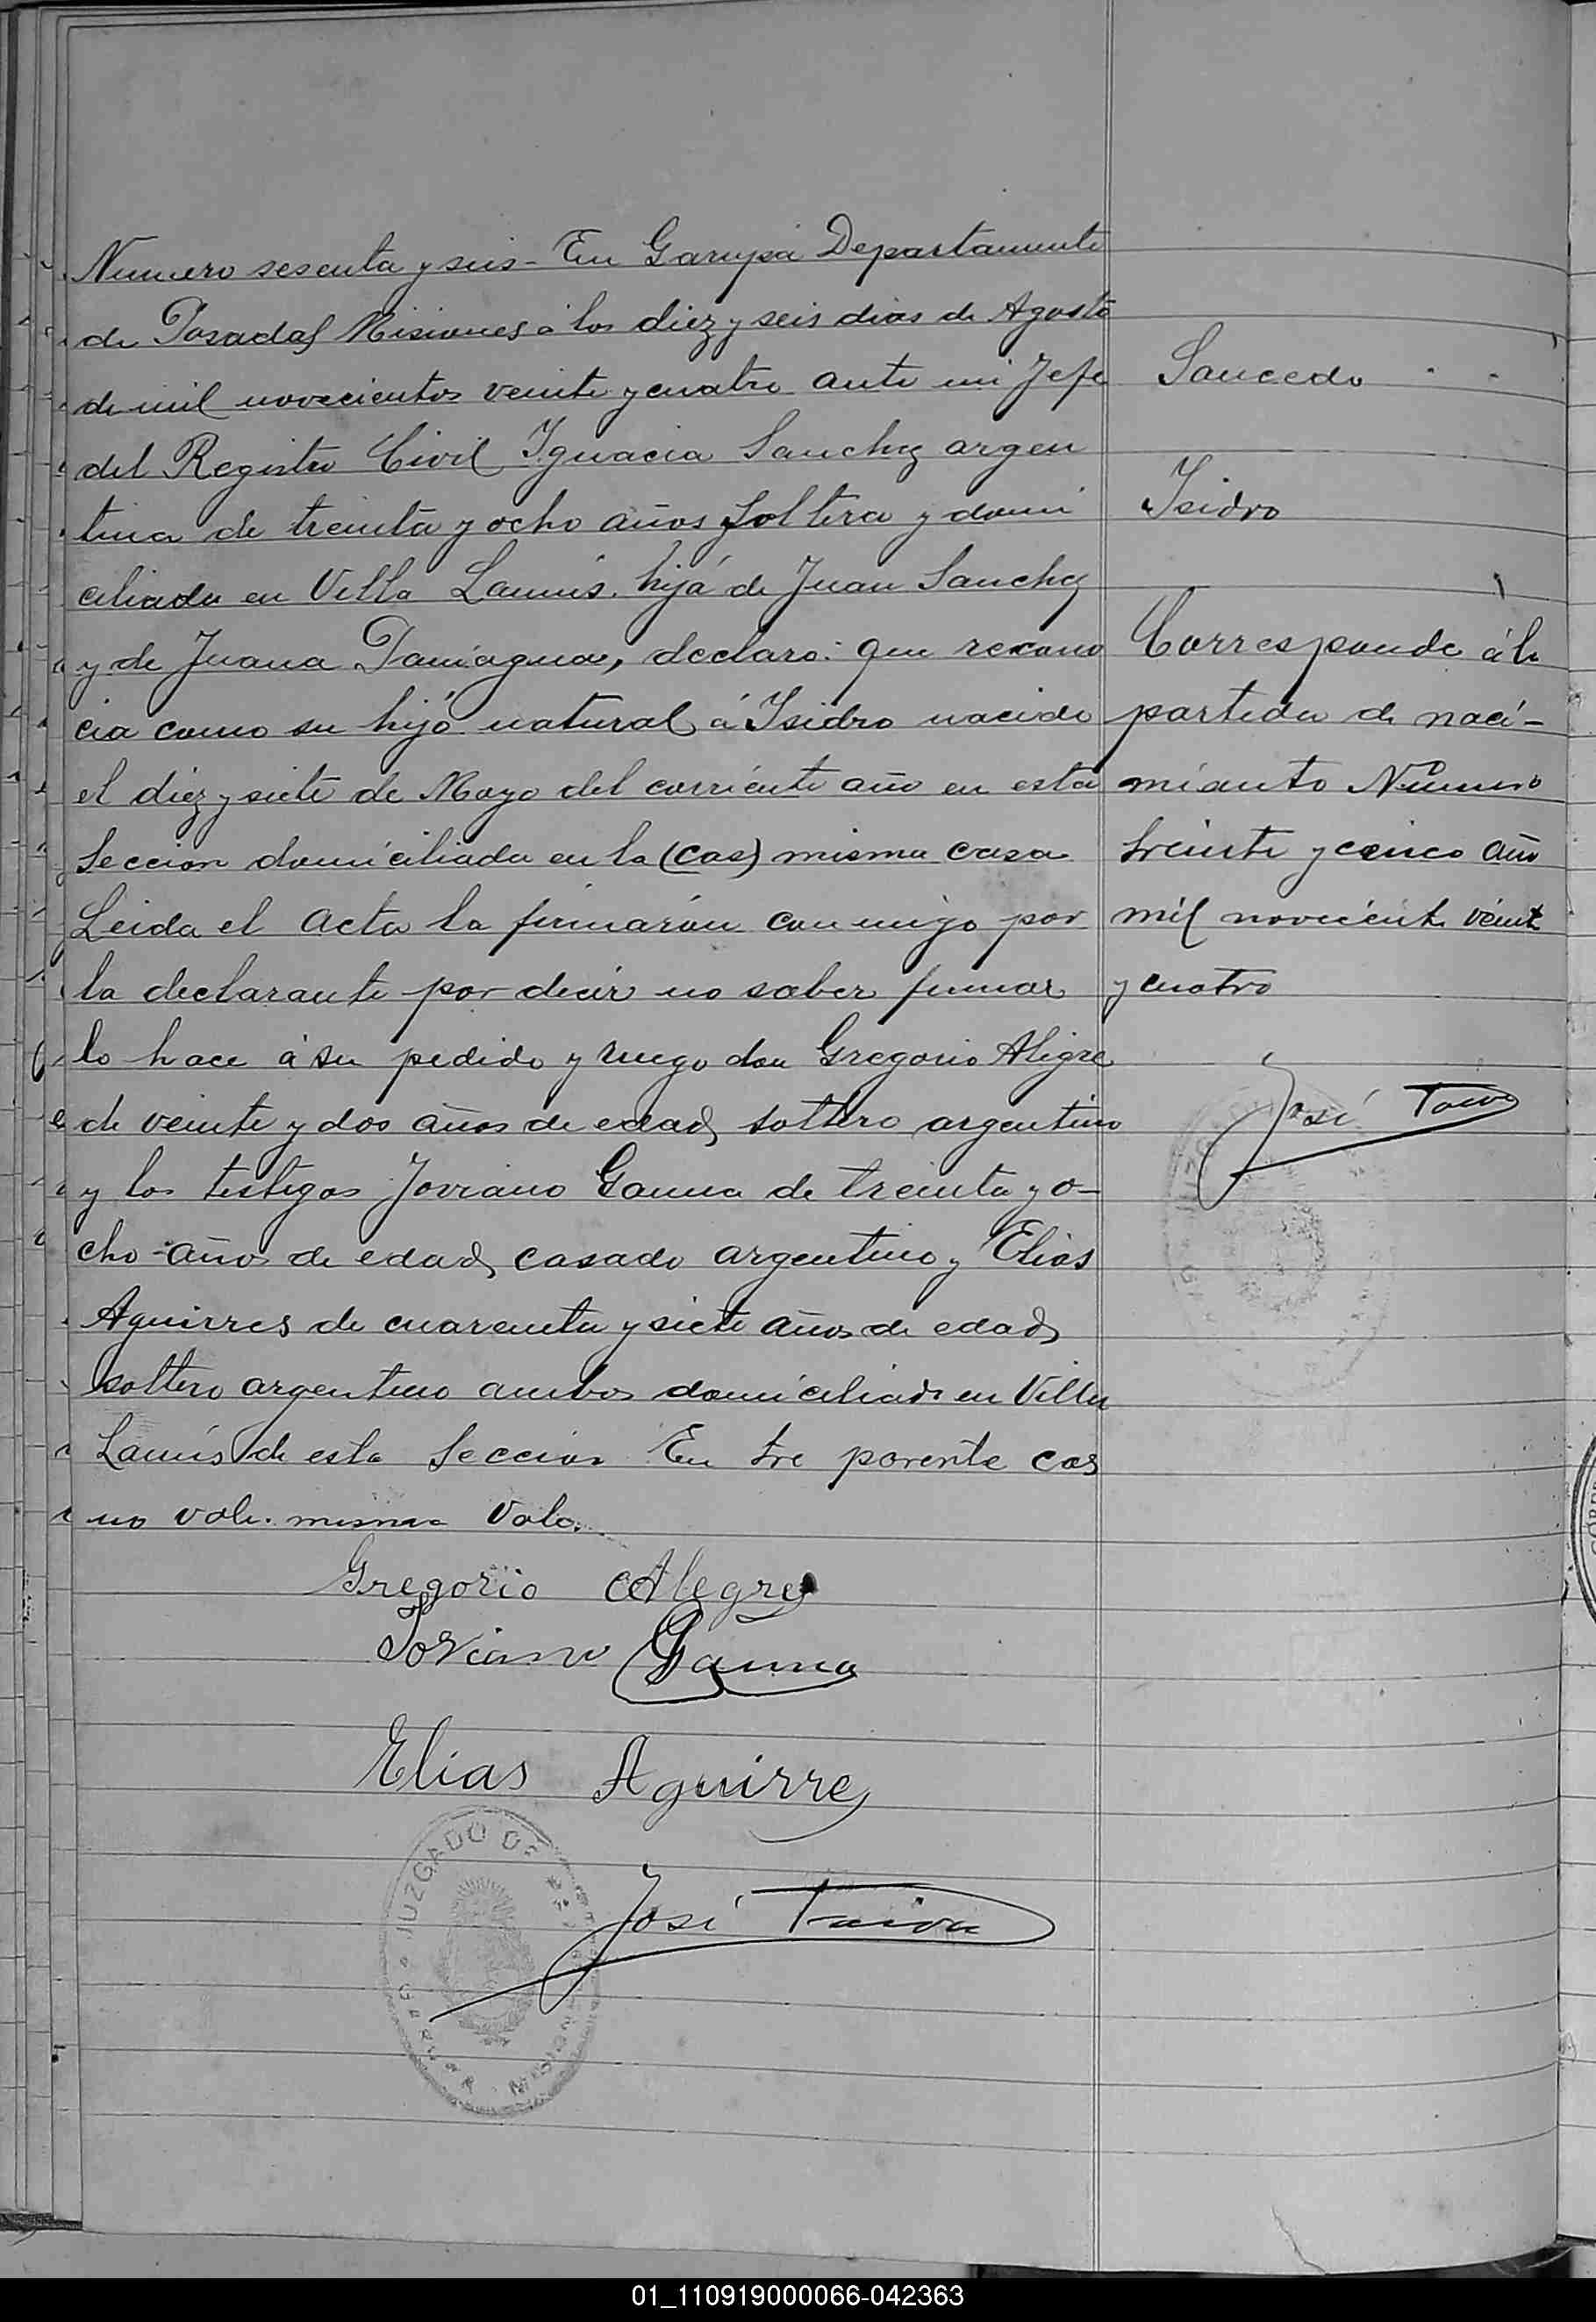 Numero sesenta y seis - En Garupá Departamento
de Posadas Misiones á los diez y seis dias de Agosto
de mil novecientos veinte y cuatro ante mi Jefe
del Registro Civil Ignacia Sanchez argen
tina de treinta y ocho años soltera y domi
ciliada en Villa Lanús. hija de Juan Sanchez
y de Juana Paniagua, declaro: que recono
cia como su hijo natural á Isidro nacido
el diez y siete de Mayo del corriente año en esta
Seccion domiciliada en la (cas) misma casa
Leida el acta la firmarón conmigo por
la declarante por decir no saber firmar
lo hace á su pedido y ruego don Gregorio Aligre
de veinte y dos años de edad soltero argentino
y los testigos Joviano Gauna de treinta y o-
cho años de edad casado argentino y Elias
Aguirres de cuarenta y siete años de edad
soltero argentino ambos domiciliado en Villa
Lanús de esta Seccion En tre parente cas
no vale. misma Vale.
Gregorio Alegre
Joviano Gauna
Elias Aguirre
José
JUZGADO DE
Saucedo
Isidro
Corresponde á la
partida de naci-
miento Número
treinta y cinco año
mil novecient veint
y cuatro
José
01_110919000066-042363